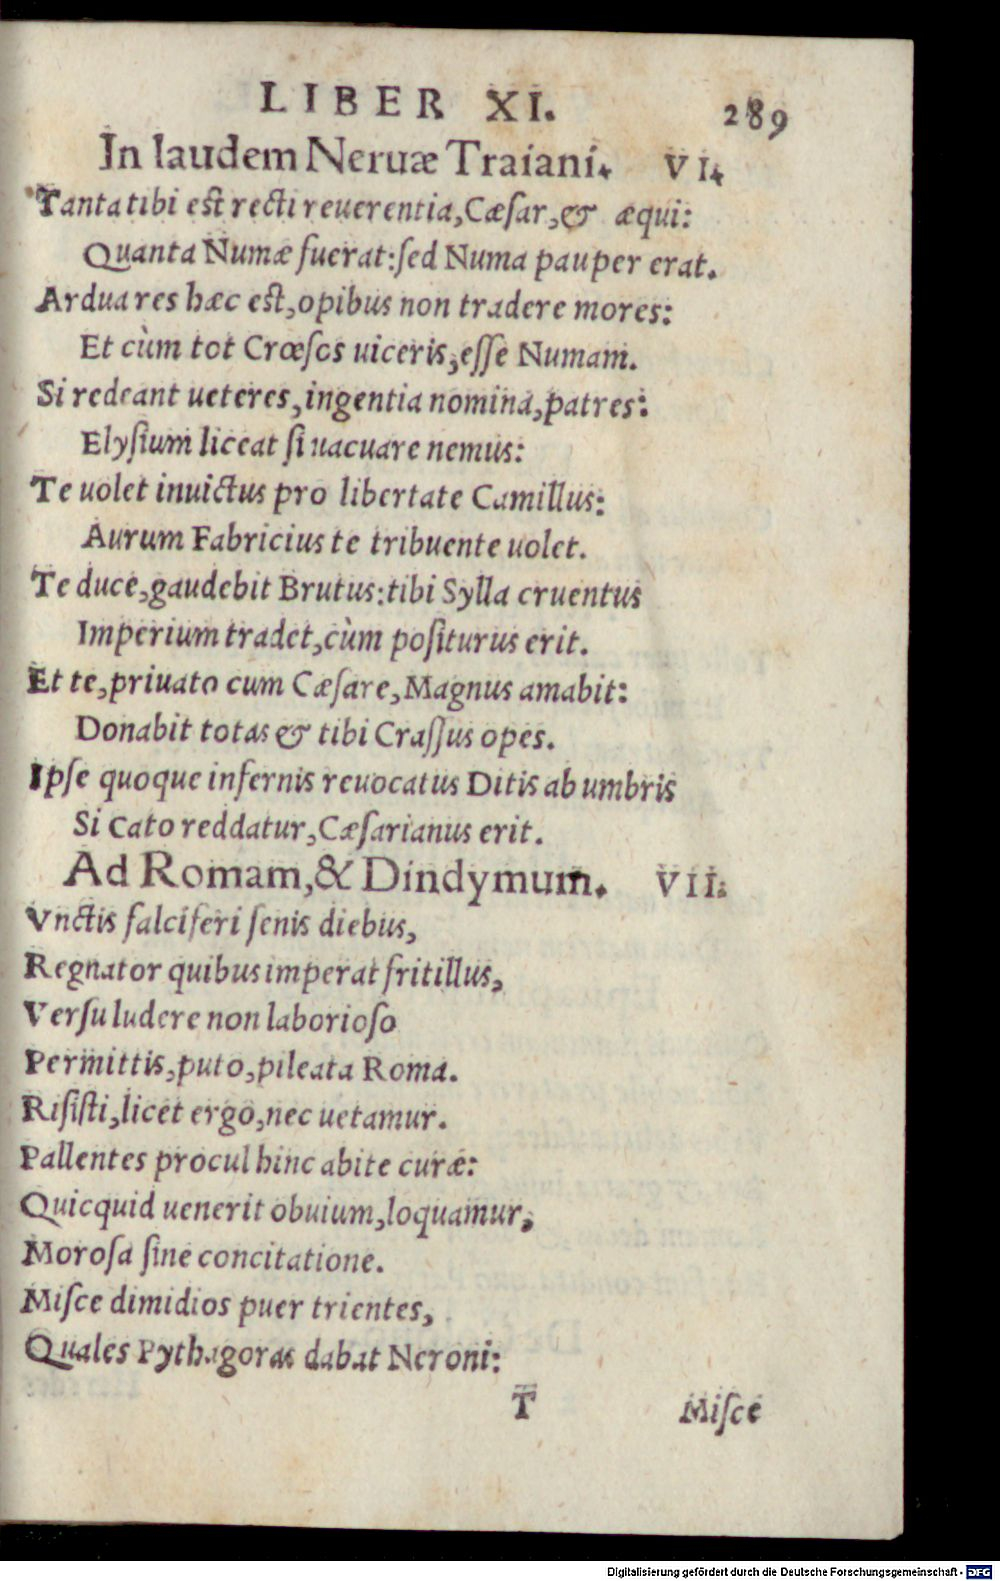 LIBER XI. 289
In laudem Neruæ Traiani. VI.
Tanta tibi est recti reuerentia, Cæſar, & æqui:
Quanta Numæ fuerat: ſed Numa pauper erat.
Ardua res hæc est, opibus non tradere mores:
Et cùm tot Crœſos uiceris, eſſe Numam.
Si redeant ueteres, ingentia nomina, patres:
Elyſium liceat ſi uacuare nemus:
Te uolet inuictus pro libertate Camillus:
Aurum Fabricius te tribuente uolet.
Te duce, gaudebit Brutus: tibi Sylla cruentus
Imperium tradet, cùm poſiturus erit.
Et te, priuato cum Cæſare, Magnus amabit:
Donabit totas & tibi Craſſus opes.
Ipſe quoque infernis reuocatus Ditis ab umbris
Si Cato reddatur, Cæſarianus erit.
Ad Romam, & Dindymum. VII.
Vnctis falciferi ſenis diebus,
Regnator quibus imperat fritillus,
Verſu ludere non laborioſo
Permittis, puto, pileata Roma.
Riſiſti, licet ergo, nec uetamur.
Pallentes procul hinc abite curæ:
Quicquid uenerit obuium, loquamur,
Moroſa ſine concitatione.
Miſce dimidios puer trientes,
Quales Pythagoras dabat Neroni:
T Miſce
Digitalisierung gefördert durch die Deutsche Forschungsgemeinschaft - DFG